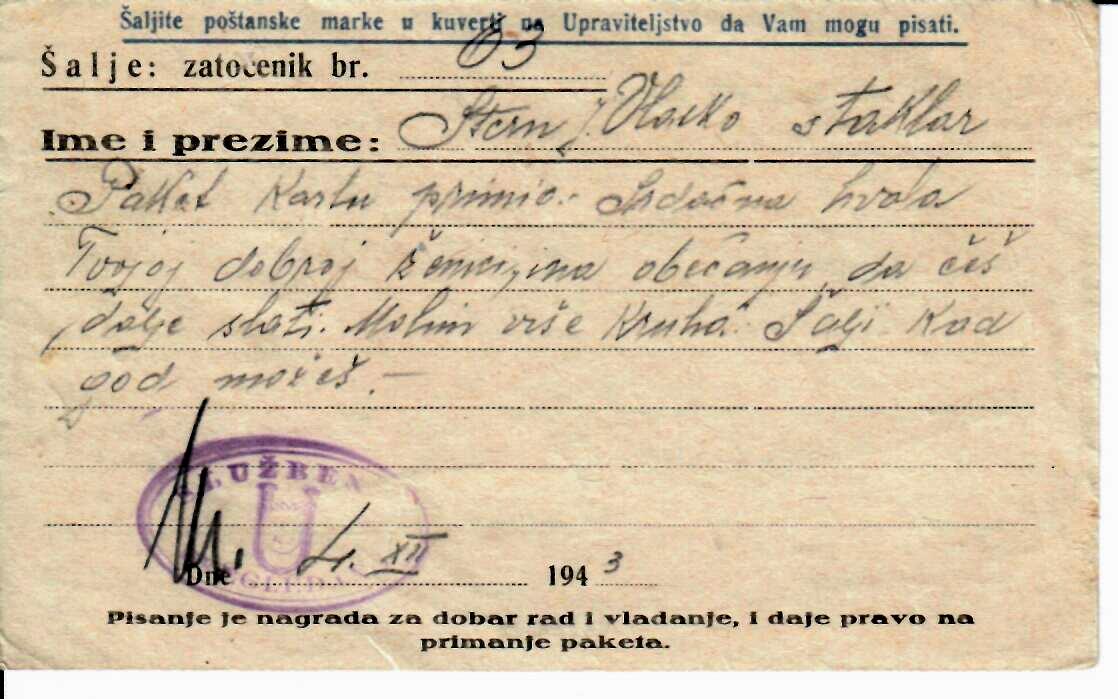 Šaljite poštanske marke u kuverti na Upraviteljstvo da Vam mogu pisati.
Šalje: zatočenik br. 63
Ime i prezime: Stern J. Vlatko staklar
Paket kartu primio. Srdačna hvala
Tvojoj dobroj ženici, ina obećanju da ćeš
dalje slati. Molim više kruha. Šalji kad
god možeš. —
SLUŽBENO
U
PREGLEDANO
Dne 4. XII 1943
Pisanje je nagrada za dobar rad i vladanje, i daje pravo na
primanje paketa.